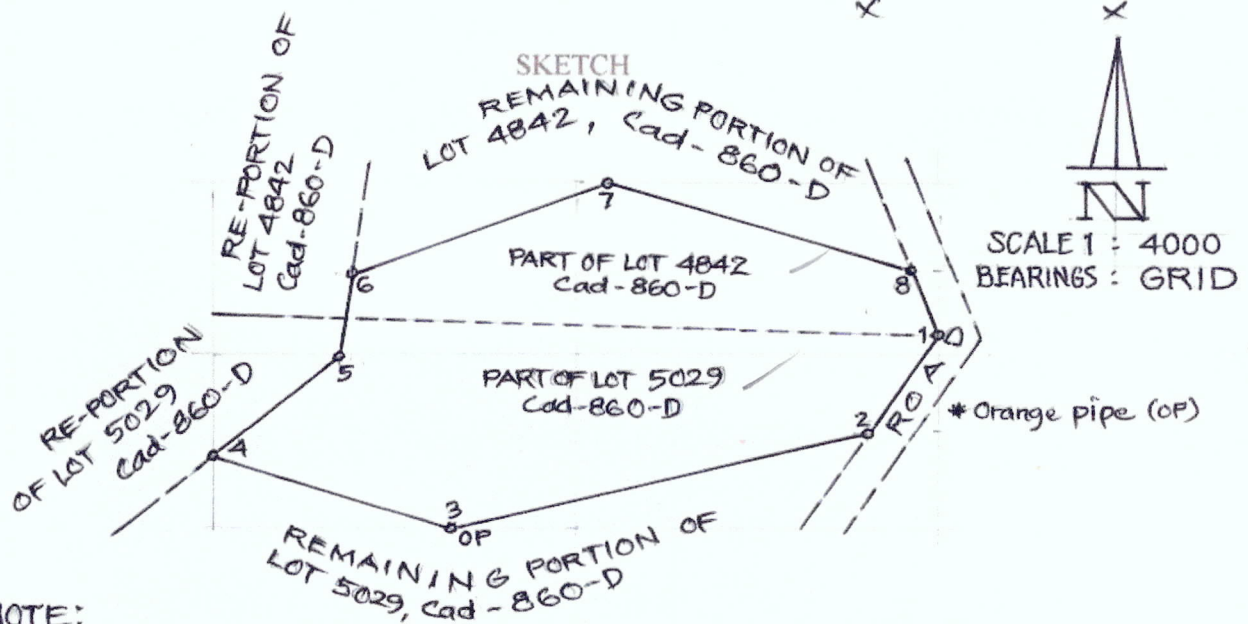 X
X
SKETCH
RE-PORTION OF
LOT 4842
Cad-860-D
REMAINING PORTION OF
LOT 4842, Cad-860-D
N
SCALE 1 : 4000
BEARINGS : GRID
7
6
8
PART OF LOT 4842
Cad-860-D
1
5
PART OF LOT 5029
Cad-860-D
ROAD
* Orange pipe (OP)
2
RE-PORTION
OF LOT 5029
Cad-860-D
4
3
OP
REMAINING PORTION OF
LOT 5029, Cad-860-D
NOTE: